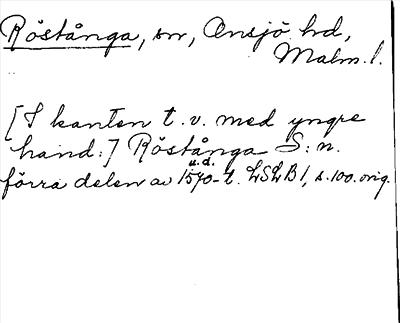 Röstånga, sn, Onsjö hd,
Malm. l.
[I kanten t.v. med yngre
hand:] Röstånga S:n.
u.d.
förra delen av 1570-t. LSLB 1, s. 100. orig.